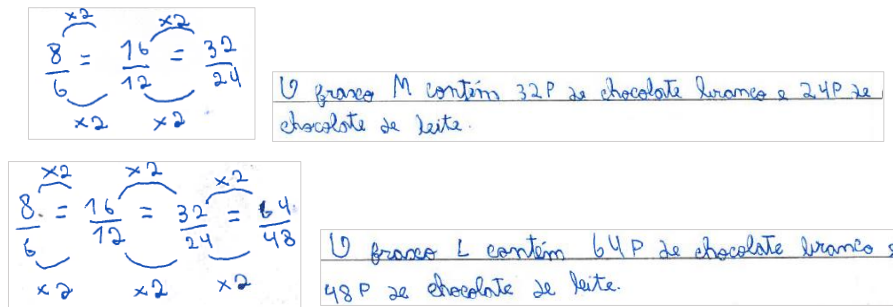 ×2 ×2
8/6 = 16/12 = 32/24
×2 ×2
O frasco M contém 32P de chocolate branco e 24P de
chocolate de leite.
×2 ×2 ×2
8/6 = 16/12 = 32/24 = 64/48
×2 ×2 ×2
O frasco L contém 64P de chocolate branco e
48P de chocolate de leite.